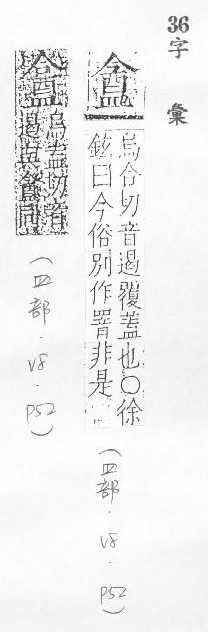 36字彙
烏合切音遏覆蓋也○徐
鉉曰今俗別作罯非是
(皿部.V8.P52)
烏盍切音
遏與盦同
(皿部.V8.P52)